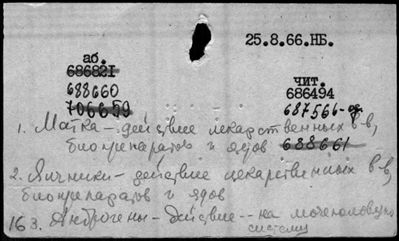 25.8.66.НБ.
аб.
686821
688660
706659
чит.
686494
687566-
1. Матка - действие лекарственных в-в,
биопрепаратов и ядов 688661
2. Яичники - действие лекарственных в-в,
биопрепаратов и ядов
16 3. Андрогены - действие - на мочеполовую
систему